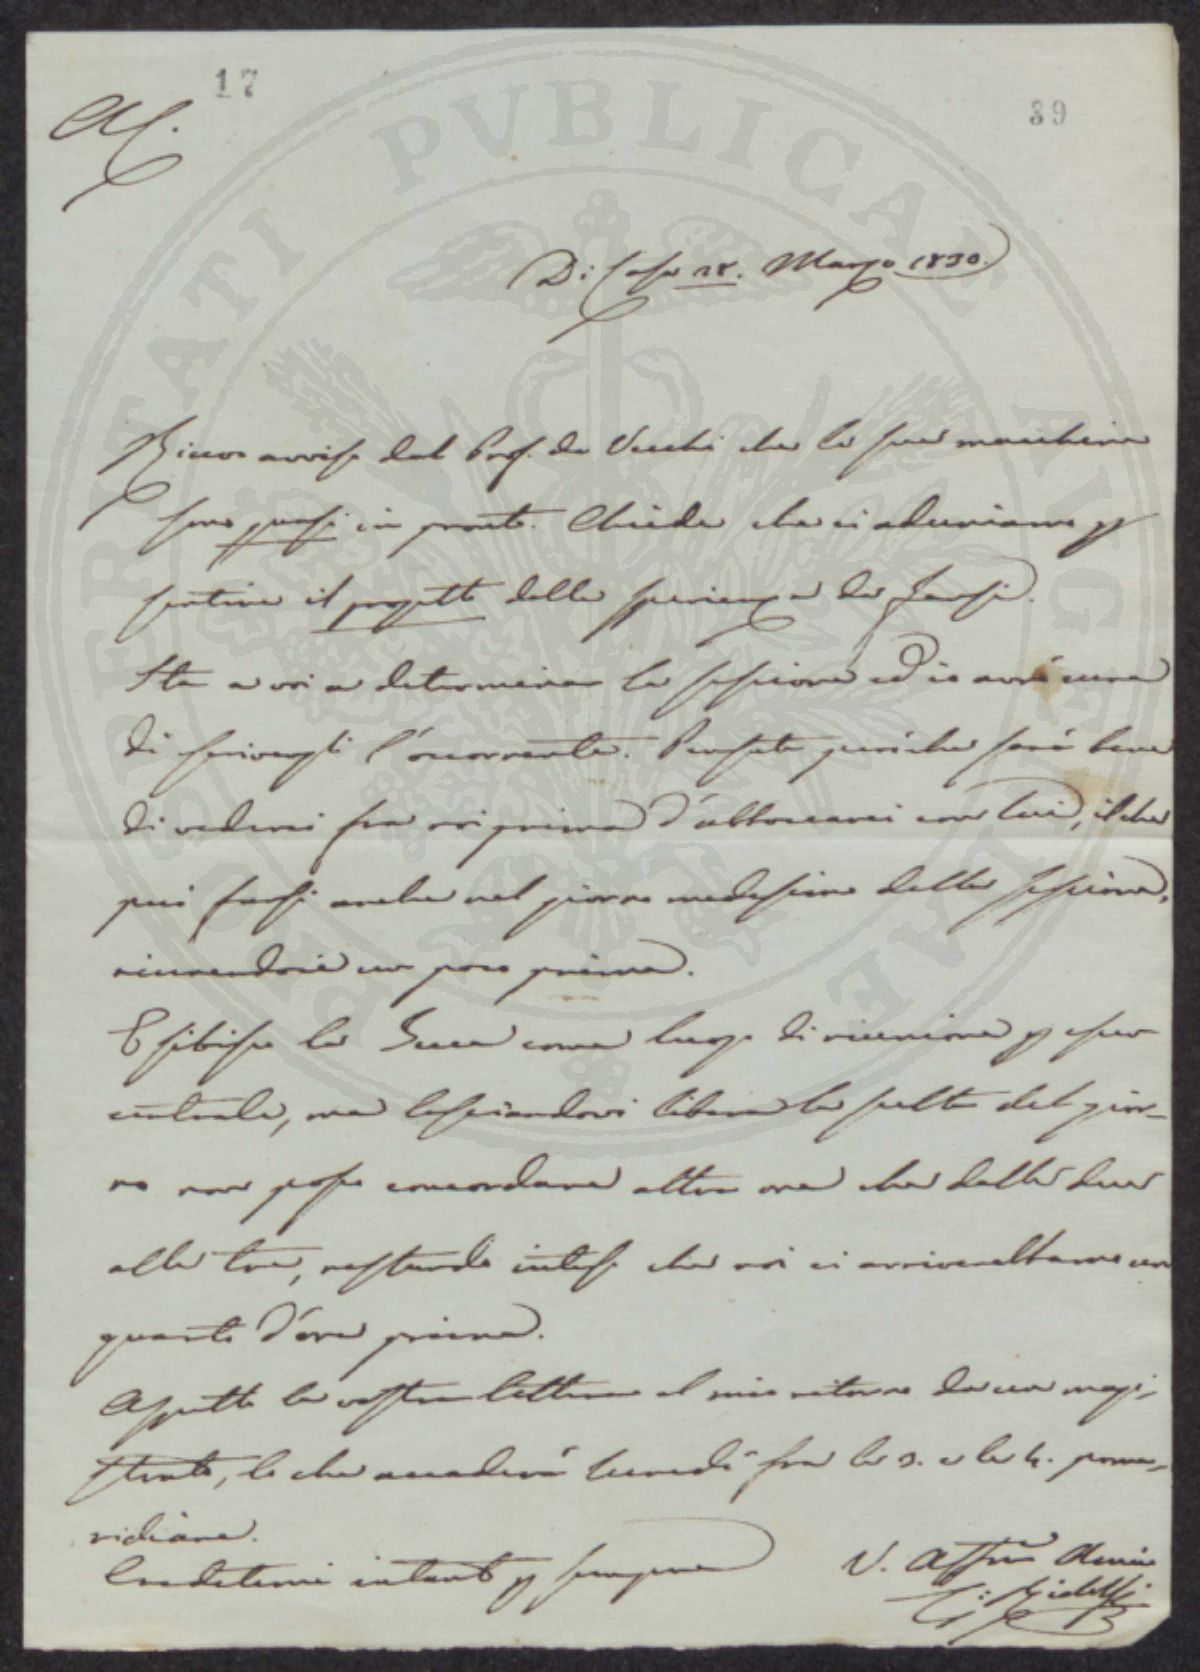 17
39
AC.
Di Casa 28. Marzo 1830.
Ricevo avviso dal Prof. de Vecchi che le sue macchine
sono quasi in pronto. Chiede che ci aduniamo p
sentire il progetto delle sperienze da farsi.
Sta a voi a determinar la sessione ed io avrò cura
di scrivergli l'occorrente. Pensate però che sarà bene
di vederci fra noi prima d'abboccarci con lui, il che
può farsi anche nel giorno medesimo della sessione,
riunendoci un poco prima.
Esibisco la casa come luogo di riunione p esser
centrale, ma lasciandovi libera la scelta del gior-
no non posso concordare altra ora che dalle due
alle tre, restando inteso che noi ci arriverebbamo un
quarto d'ora prima.
Aspetto la vostra lettera al mio ritorno da un magi-
strato, lo che accaderà lunedì fra le 3. e le 4. pome-
ridiane.
Credetemi intanto p sempre
V. Affmo Amico
PROSPERITATI PVBLICAE AVGENDAE